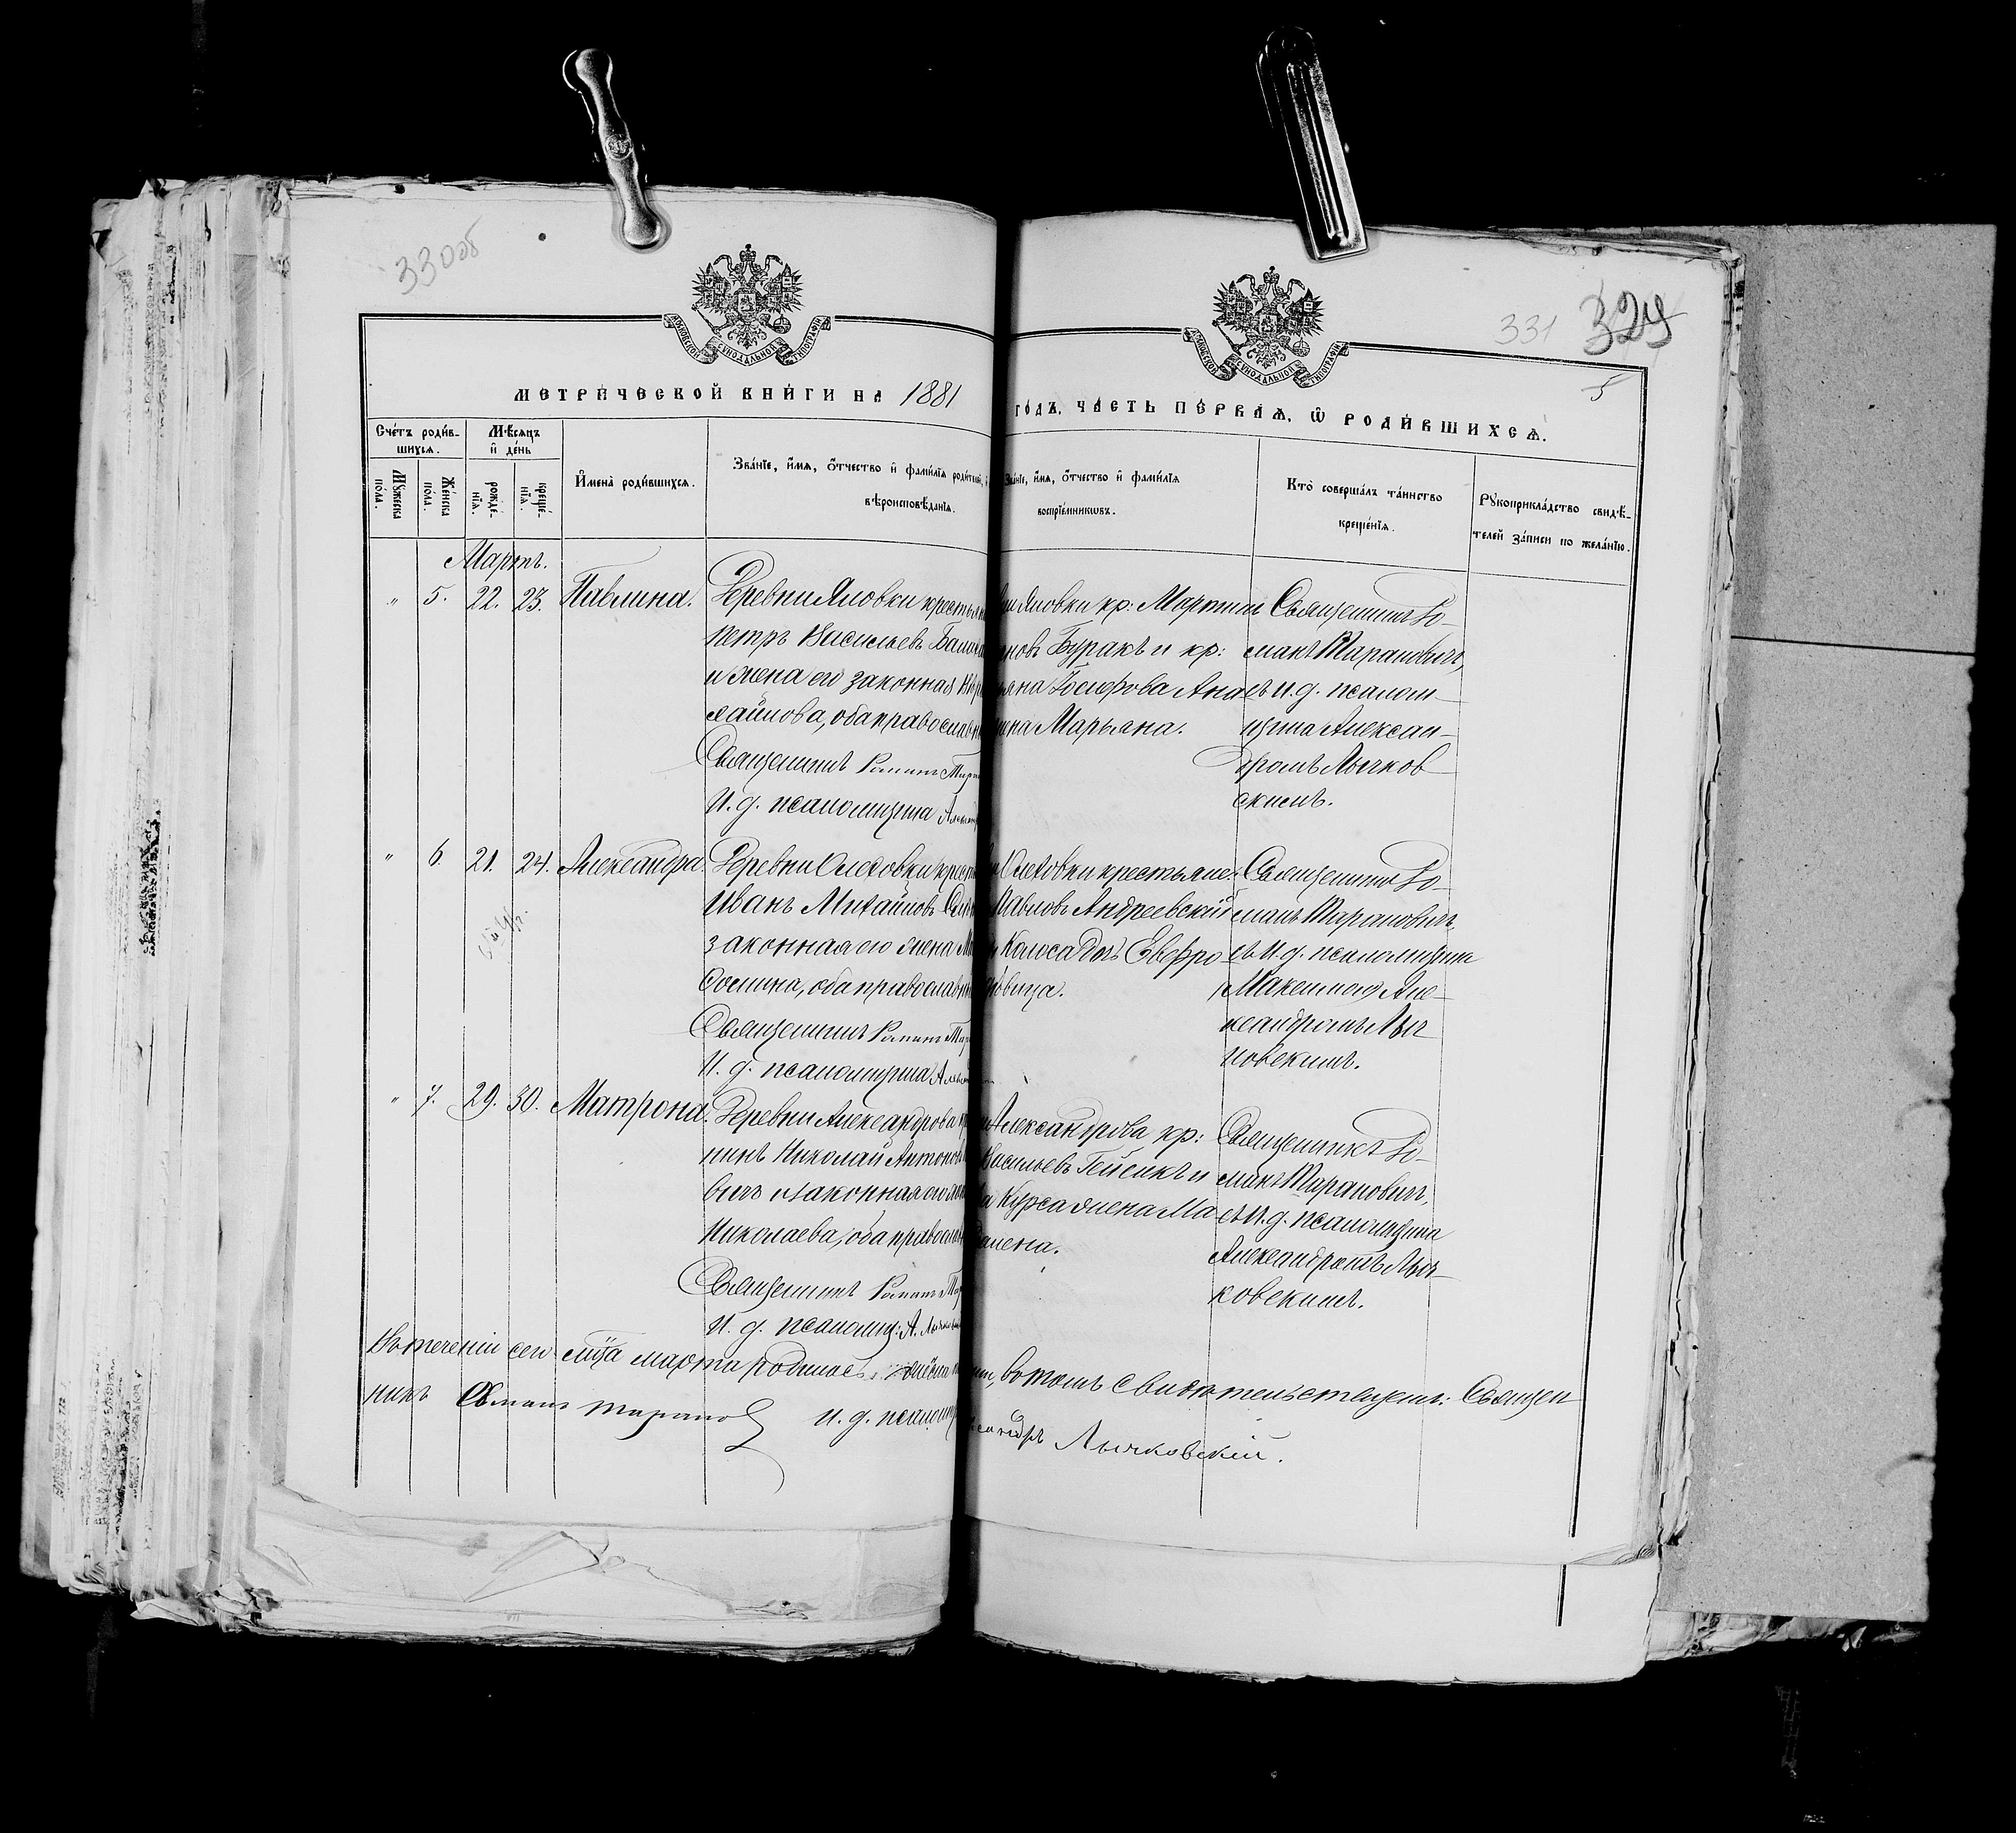 330об
331 329
5
МОСКОВСКОЙ СУНОДАЛЬНОЙ ТИПОГРАФІИ
МОСКОВСКОЙ СУНОДАЛЬНОЙ ТИПОГРАФІИ
МЕТРИЧЕСКОЙ КНИГИ НА 1881
ГОДЪ, ЧАСТЬ ПЕРВАЯ, Ѿ РОДИВШИХСЯ.
Счетъ родив-
шихся.
Мужеска
пола.
Женска
пола.
Мѣсяцъ
и день
рожде-
нія.
креще-
нія.
Имена родившихся.
Званіе, имя, отчество и фамилія родителей,
вѣроисповѣданія.
Званіе, имя, отчество и фамилія
воспріемниковъ.
Кто совершалъ таинство
крещенія.
Рукоприкладство свидѣ-
телей записи по желанію.
Мартъ.
„ 5. 22. 23. Павлина.
Деревни Яловки
Петръ Васильевъ
и жена его законная
оба православн
Священникъ Романъ
И. д. псаломщика
Яловки кр: Мартин
Буракъ и кр:
Іосифова
Марьяна.
Священникъ Ро-
манъ Таранович,
съ и. д. псалом-
щика Алексан-
дромъ Лычков
скимъ.
„ 6. 21. 24. Александра.
Деревни Олеховки
Иванъ Михайловъ
законная его жена
оба православн
Священникъ Романъ
И. д. псаломщика
Олеховки крестьяне:
Павловъ Андреевскій
Колоса дочь Евфро
Священникъ Ро-
манъ Тарановичъ
съ и. д. псаломщика
Александромъ Лыч
ковскимъ.
„ 7. 29. 30. Матрона.
Деревни Александрова
нинъ Николай Антоновъ
вичъ и законная его
Николаева, оба православн
Священникъ Романъ
И. д. псаломщ: А.
Александрова кр:
Васильевъ Гейсикъ и
Курса жена Ма
Священникъ Ро-
манъ Таранович,
съ и. д. псаломщика
Александромъ Лыч-
ковскимъ.
Въ теченіи сего м-ца марта родилось
въ томъ свидѣтельствуемъ: Священ
никъ Романъ Таранов
и. д. псаломщ
Лычковскій.